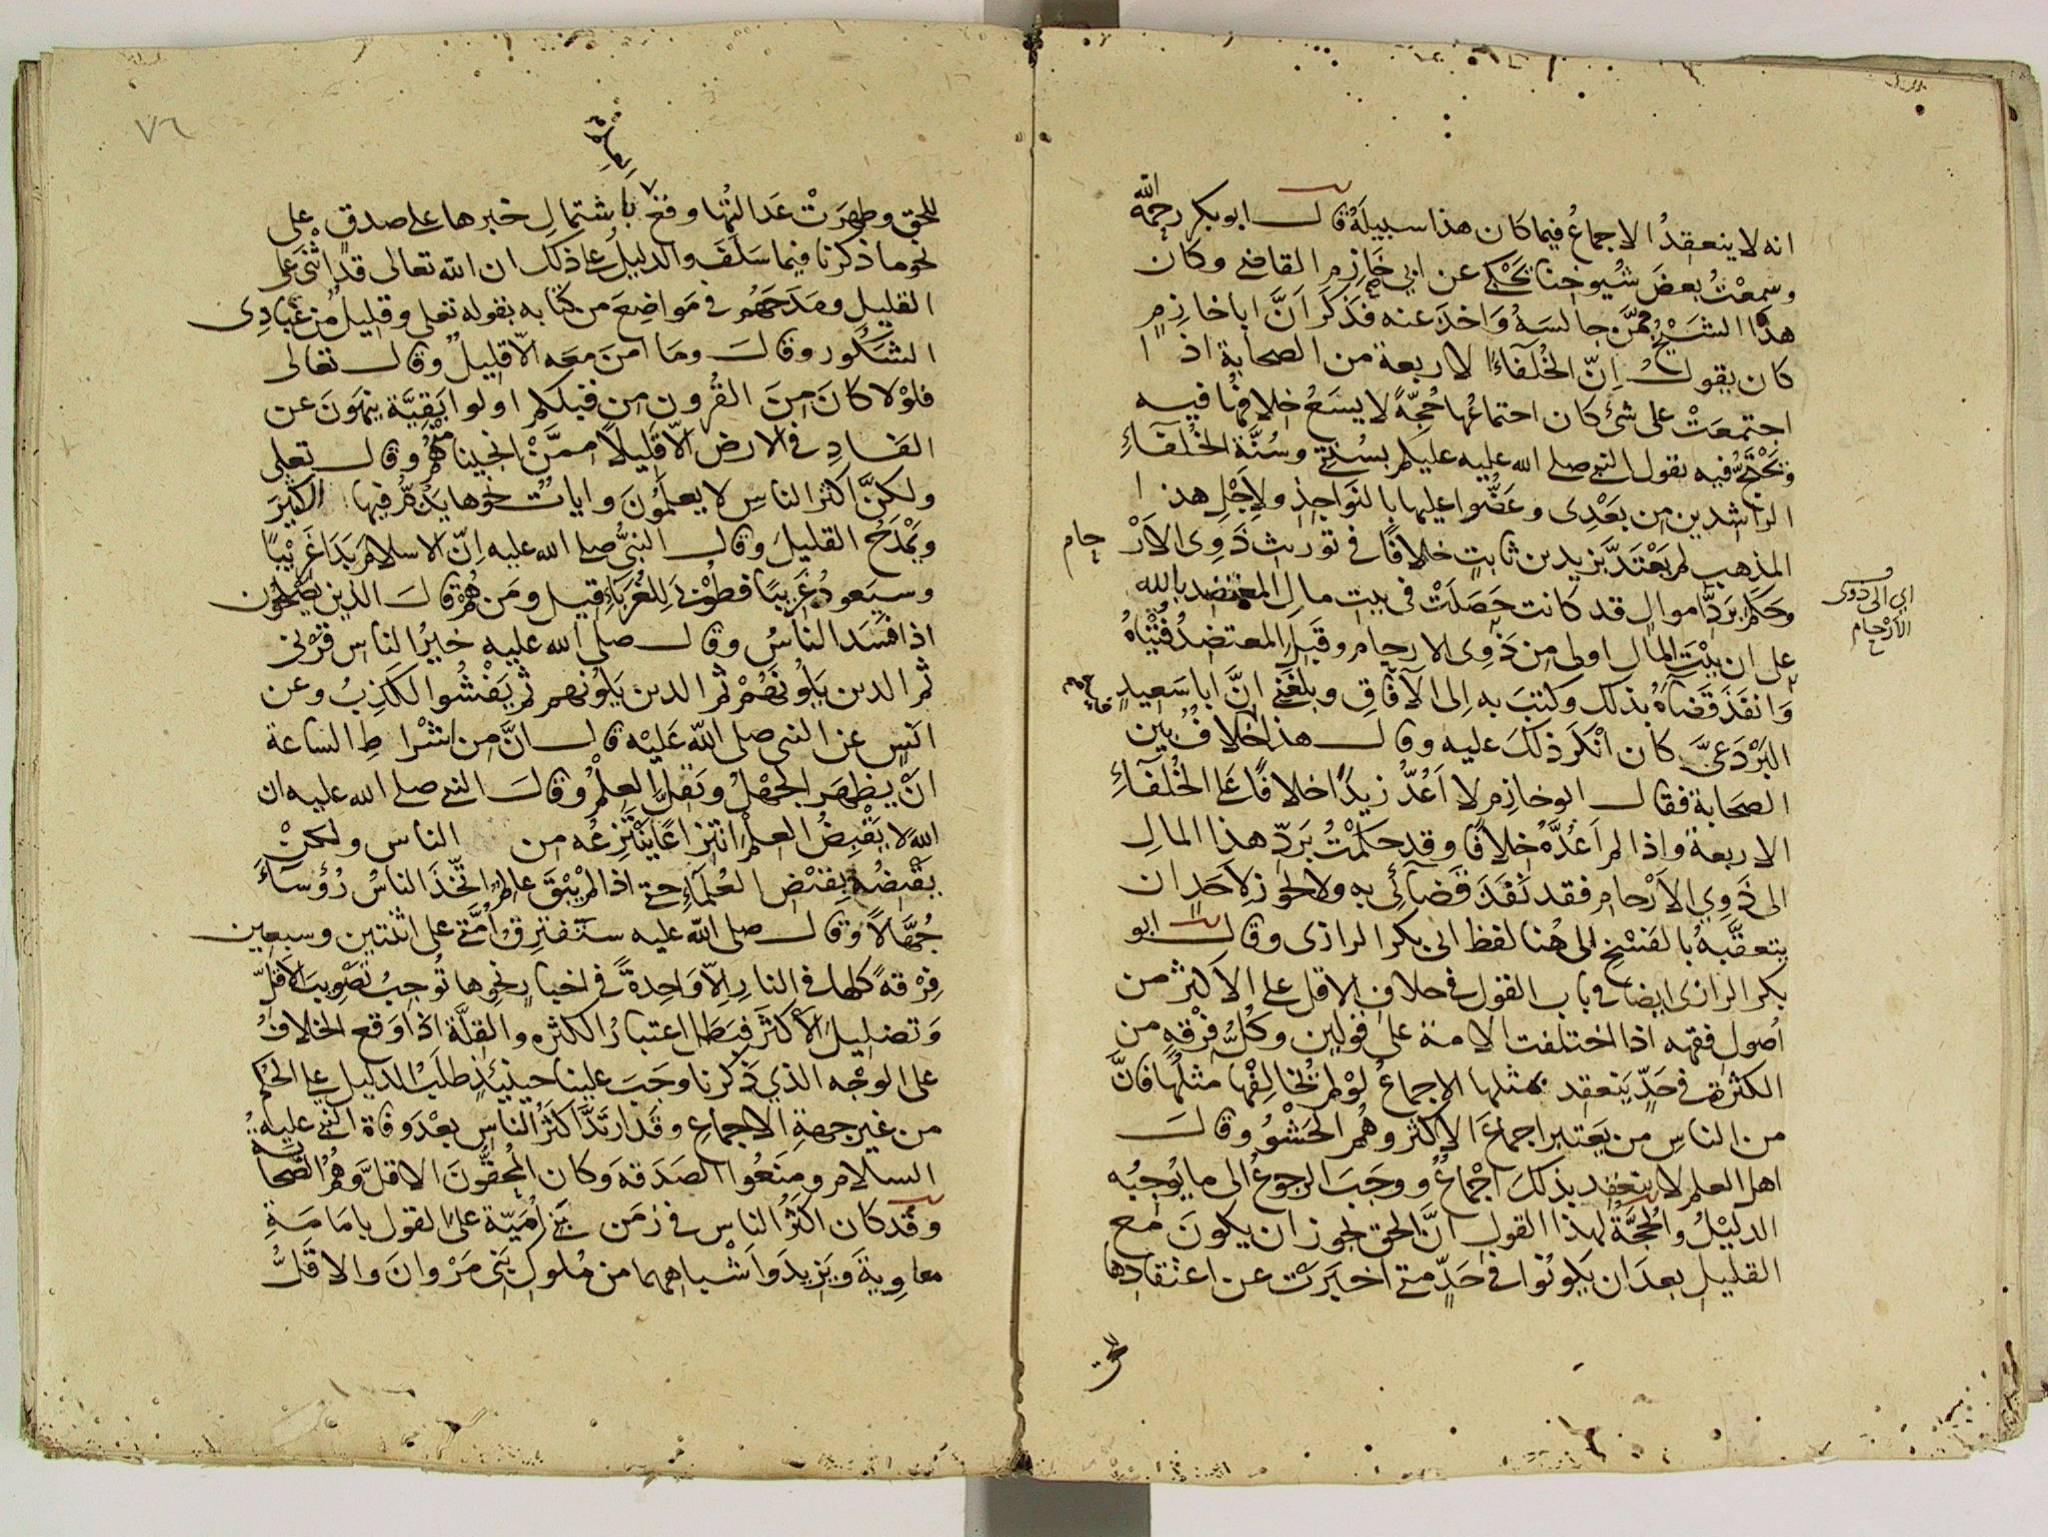 انه لا ينعقدُ الاجماعُ فيما كان هذا سبيلَهُ قال ابو بكر رحمه الله
وسمعتُ بعضَ شُيوخنا يَحْكي عن ابي خَازِمٍ القاضي وكان
هذا الشيْخُ ممَّن جالسَهُ وَاخذ عنه فذَكَرَ اَنَّ ابا خازِمٍ
كان يقول اِنّ الخُلَفآءَ الاربعة من الصحابة اذا
اجتمعَتْ على شئ كان اجتماعُها حُجّةً لا يسَعُ خِلافُها فيه
وَيَحْتَجُّ فيه بقول النبي صلى الله عليه عليكم بسُنّتي وسُنَّة الخُلَفآءِ
الراشدين من بَعْدِى وعَضُّوا عليها بالنَواجِذِ ولاَجْلِ هذا
المذهب لم يَعْتَدَّ بزيد بن ثابتٍ خلافًا في توريث ذَوِى الاَرْحام
وحَكَمَ بَردِّ اموالٍ قد كانت حَصَلَتْ فى بيت مالِ المعتضد بالله
اي الى ذوى الاَرْحام
على ان بيْتَ المال اولى من ذَوِى الارحام وقَبِلَ المعتضدُ فُتْيَاهُ
وَانفَذَ قَضَاهُ بذلك وكتَبَ به اِلى الآفَاقِ وبلغَني اِنَّ ابا سَعيدٍ
البَرْدَعِيَّ كان اَنْكَرَ ذلكَ عليه وقال هذا خلافٌ بين
الصحابة فقال ابو خازِمٍ لا اَعُدُّ زيدًا خلافًا عَلَى الخُلَفآءِ
الاربعة واذا لم اَعُدَّهُ خِلافًا وقد حكَمْتُ بَردِّ هذا المالِ
الى ذَوِي الاَرْحام فقد نَفَذَ قَضَآئِى به ولا يجوز لاَحَدٍ ان
يتعقَّبَهُ بالفَسْخ الى هُنا لفظ ابى بكر الرازى وقال ابو
بكر الرازى ايضا في باب القول في خلاف الاقل على الاكثر من
اُصول فقهه اذا اختلفت الامة على قولين وكُلُّ فِرْقةٍ من
الكثرة في حَدٍّ يَنعقد بمثلها الاِجماعُ لوْ لم تُخالِفْها مثلُها فانَّ
من الناسِ من يَعتبر اجماعَ الاكثر وهُم الحَشْوُ وقالَ
اهل العلم لا ينعقد بذلكَ اجْماعٌ ووجَبَ الرجوعُ الى ما يُوجبُه
الدليْلُ والحُجَّةُ لهذا القول انَّ الحق يجوز ان يكونَ مع
القليل بعدَ ان يَكونوا في حَدٍّ متى اخبَرَتْ عن اعتقادِها
للحق
للحقِ وظهرَتْ عَدالتُها وقع باشتمالِ خبرها على صدقٍ على
نحو ما ذكرنا فيما سَلَفَ والدليلُ على ذلك ان الله تعالى قد اثْنَى على
القليلِ ومَدَحَهُم في مَواضِعَ من كتابه بقوله تعلى وقليلٌ من عِبادِى
الشكُور وقالَ وما امنَ معَه الاّ قليلٌ وقال تعالى
فلوْلا كانَ مِنَ القُرون مِن قبلكم اولوا بَقِيَّة ينهَونَ عن
الفسادِ في الارض الاّ قليلاً ممَّنْ انجينا منهُم وقال تعلى
ولكنَّ اكثر الناسِ لا يعلمُونَ وايات نحوها يَذُمُّ فيها الكثيرَ
ويَمْدَحُ القليلَ وقال النبيُّ صلى الله عليه اِنّ الاسلامَ بَدَا غَريْبًا
وسيَعودُ غَريبًا فطوبى لِلغُرَبآءِ قيل ومَن هُمْ قالَ الذين يُصْلِحُون
اذا فَسَدَ الناسُ وقال صلى الله عليه خيرُ الناس قَرْنى
ثم الذين يَلُونَهُمْ ثم الذين يَلُونهم ثم يَفْشُوا الكَذِبُ وعن
انَسٍ عن النبى صلى الله عَليْه قال انَّ من اَشْرَاطِ الساعة
انْ يظهَرَ الجَهْلُ وَيَقِلَّ العِلْمُ وقالَ النبي صلى الله عليه ان
اللهَ لا يَقْبِضُ العلمَ انتزاعًا يَنْتَزِعُه من الناس ولكنْ
يقبضُه بقبْضِ العُلمآءِ حتى اذا لم يَبْقَ عالِمٌ اتّخَذَ الناسُ رُؤسآءَ
جُهَّالاً وقال صلى الله عليه ستَفترِقُ اُمَّتي على اثنتين وسبعين
فِرْقةً كلها في النار اِلاّ وَاحِدةً في اخبارٍ نحوها تُوجِبُ تَصْوِيبَ الاَقلّ
وَتضليلَ الأكثَر فبَطَل اعتبارُ الكثرة والقِلَّة اذا وَقعَ الخلافُ
على الوَجْه الذي ذكرنا وجَبَ علينا حينئذٍ طلَبُ الدليلِ على الحُكم
من غير جهةِ الاجماعِ وقَدِ ارتَدَّ اكثَرُ الناسِ بعْدَ وَفاة النبي عليه
السلام ومنَعُوا الصَدَقةَ وكان المُحِقُّونَ الاقلَّ وهُم الصحابة
وقَد كان اكثَرُ الناس في زمَن بَنِي اُمَيّة على القول بامَامَةِ
معاوِيةَ ويَزِيدَ وَاَشباههما من مُلوكِ بَنِى مَرْوانَ والاقَلُّ
٧٦